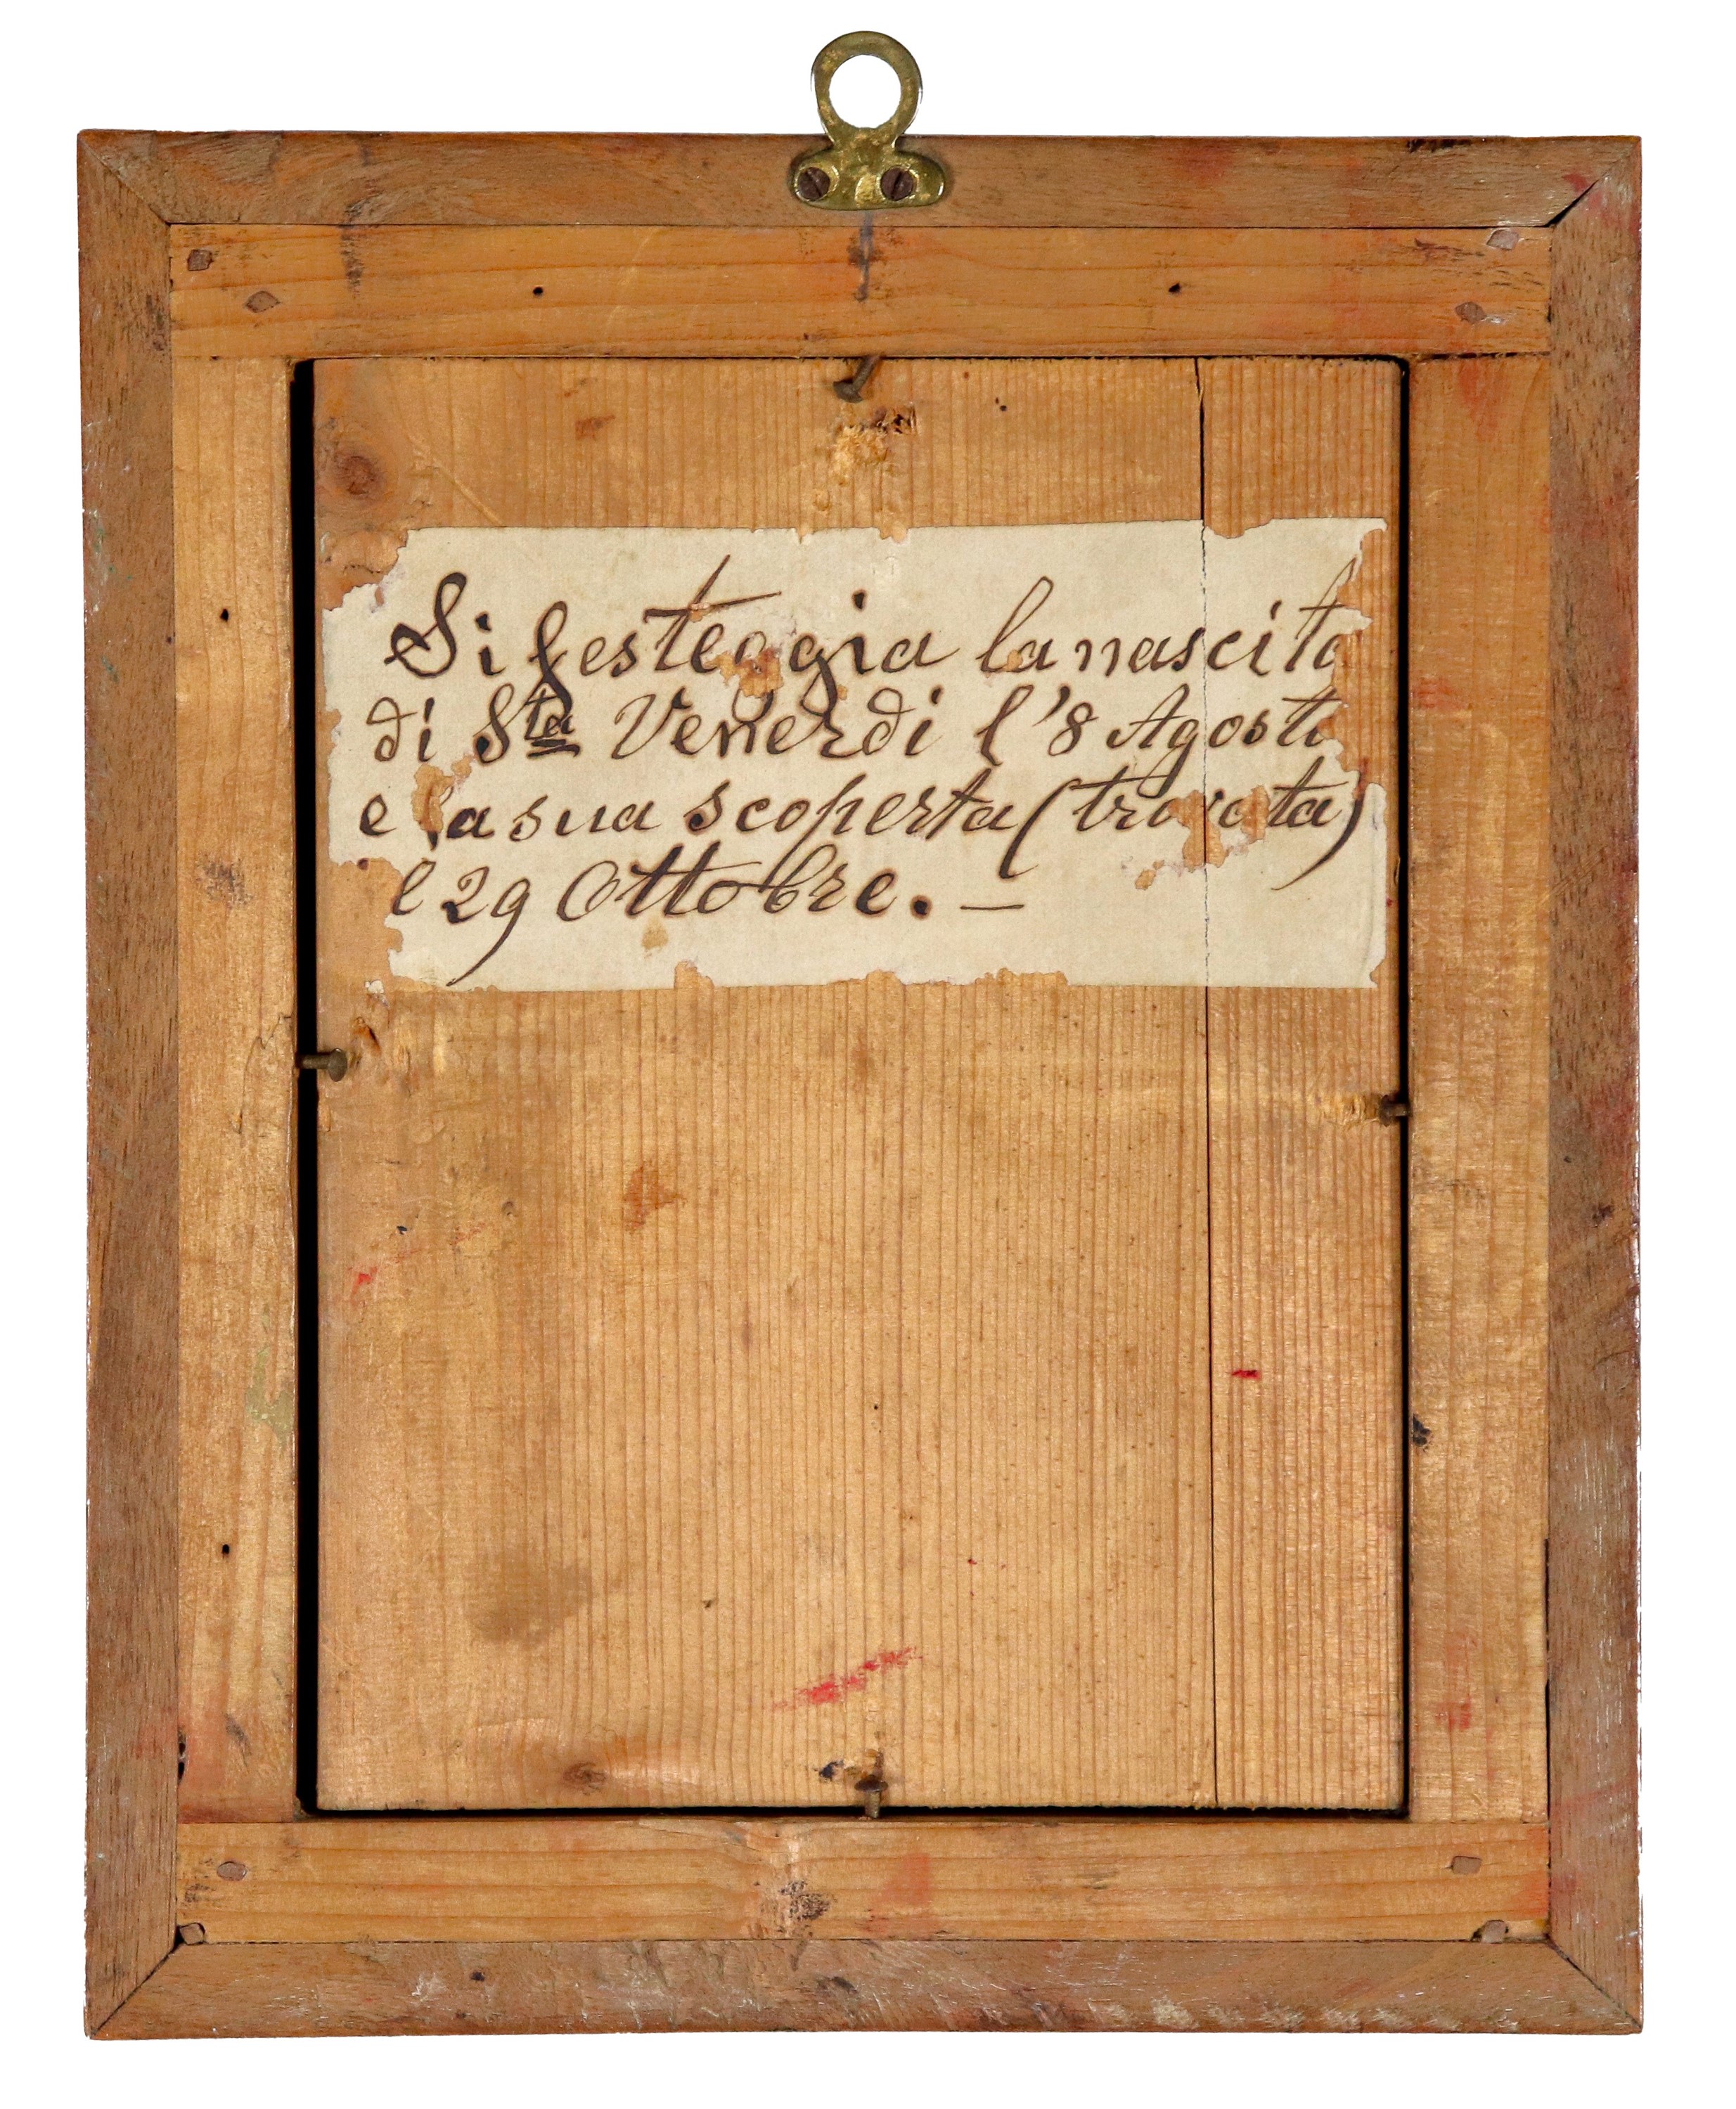 Si festeggia la nascita
di Sta Venerdi l'8 Agosto
e la sua scoperta (trovata)
l 29 Ottobre. —